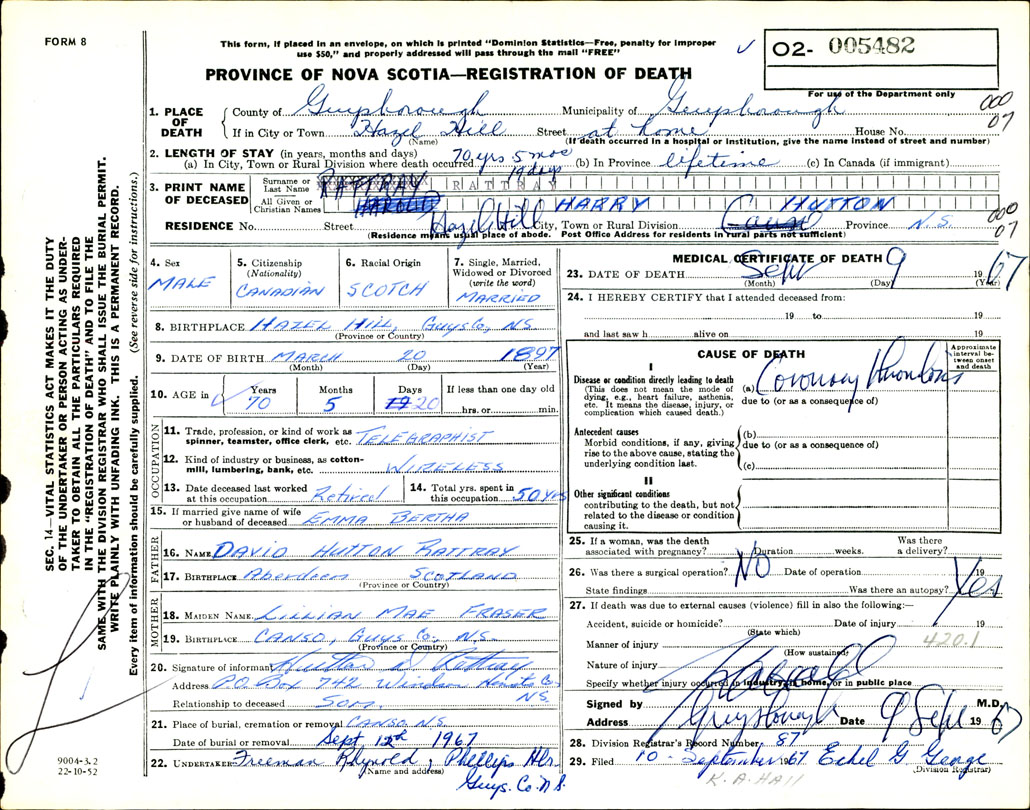 FORM 8
This form, if placed in an envelope, on which is printed "Dominion Statistics—Free, penalty for improper
use $50," and properly addressed will pass through the mail "FREE"
O2- 005482
PROVINCE OF NOVA SCOTIA—REGISTRATION OF DEATH
For use of the Department only
000
07
1. PLACE OF DEATH
County of Guysborough Municipality of Guysborough
If in City or Town Hazel Hill Street at home House No.
(Name) (If death occurred in a hospital or institution, give the name instead of street and number)
2. LENGTH OF STAY (in years, months and days) 70 yrs 5 mos
(a) In City, Town or Rural Division where death occurred 19 days (b) In Province lifetime (c) In Canada (if immigrant)
3. PRINT NAME OF DECEASED
Surname or Last Name RATTRAY RATTRAY
All Given or Christian Names HAROLD HARRY HUTTON
RESIDENCE No. Street Hazel Hill City, Town or Rural Division Canso Province N.S.
000
07
(Residence means usual place of abode. Post Office Address for residents in rural parts not sufficient)
4. Sex
MALE
5. Citizenship
(Nationality)
CANADIAN
6. Racial Origin
SCOTCH
7. Single, Married,
Widowed or Divorced
(write the word)
MARRIED
8. BIRTHPLACE HAZEL HILL, GUYS CO, N.S.
(Province or Country)
9. DATE OF BIRTH MARCH 20 1897
(Month) (Day) (Year)
10. AGE in Years Months Days If less than one day old
70 5 20 hrs. or min.
OCCUPATION
11. Trade, profession, or kind of work as
spinner, teamster, office clerk, etc. TELEGRAPHIST
12. Kind of industry or business, as cotton-
mill, lumbering, bank, etc. WIRELESS
13. Date deceased last worked
at this occupation Retired
14. Total yrs. spent in
this occupation 50 yrs
15. If married give name of wife
or husband of deceased EMMA BERTHA
FATHER
16. NAME DAVID HUTTON RATTRAY
17. BIRTHPLACE Aberdeen SCOTLAND
(Province or Country)
MOTHER
18. MAIDEN NAME LILLIAN MAE FRASER
19. BIRTHPLACE CANSO, GUYS CO, N.S.
(Province or Country)
20. Signature of informant Hutton D Rattray
Address P.O. Box 742 Windsor Hants Co.
N.S.
Relationship to deceased SON.
21. Place of burial, cremation or removal CANSO N.S.
Date of burial or removal Sept 12th 1967
22. UNDERTAKER Freeman Reynold, Phillips Hbr.
(Name and address)
Guys. Co. N.S.
MEDICAL CERTIFICATE OF DEATH
23. DATE OF DEATH Sept 9 1967
(Month) (Day) (Year)
24. I HEREBY CERTIFY that I attended deceased from:
19 to 19
and last saw h alive on 19
CAUSE OF DEATH
Approximate
interval be-
tween onset
and death
I
Disease or condition directly leading to death
(This does not mean the mode of
dying, e.g., heart failure, asthenia,
etc. It means the disease, injury, or
complication which caused death.)
(a) Coronary Thrombosis
due to (or as a consequence of)
Antecedent causes
Morbid conditions, if any, giving
rise to the above cause, stating the
underlying condition last.
(b)
due to (or as a consequence of)
(c)
II
Other significant conditions
contributing to the death, but not
related to the disease or condition
causing it.
25. If a woman, was the death Was there
associated with pregnancy? Duration weeks. a delivery?
26. Was there a surgical operation? NO Date of operation 19
State findings Was there an autopsy? Yes
27. If death was due to external causes (violence) fill in also the following:—
Accident, suicide or homicide? Date of injury 19
(State which)
420.1
Manner of injury
(How sustained)
Nature of injury
Specify whether injury occurred in industry, in home, or in public place
Signed by M.D.
Address Guysborough Date 9 Sept 1967
28. Division Registrar's Record Number 87
29. Filed 10 - September 1967 Ethel G George
(Division Registrar)
K. A. HAll
SEC. 14—VITAL STATISTICS ACT MAKES IT THE DUTY
OF THE UNDERTAKER OR PERSON ACTING AS UNDER-
TAKER TO OBTAIN ALL THE PARTICULARS REQUIRED
IN THE "REGISTRATION OF DEATH" AND TO FILE THE
SAME WITH THE DIVISION REGISTRAR WHO SHALL ISSUE THE BURIAL PERMIT.
WRITE PLAINLY WITH UNFADING INK. THIS IS A PERMANENT RECORD.
Every item of information should be carefully supplied. (See reverse side for instructions.)
9004-3.2
22-10-52